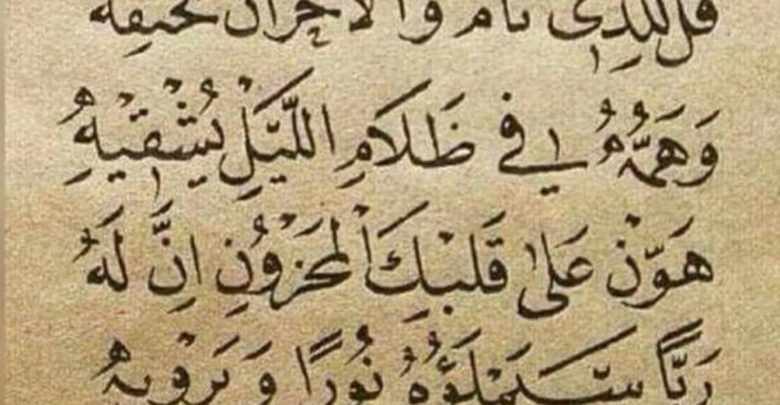 قل للذي نام والأحزان تخيفه
وَهَمُّهُ في ظَلَامِ اللَّيْلِ يُشْقِيْهِ
هَوِّنْ عَلَى قَلْبِكَ الْمَحْزُوْنِ اِنَّ لَهُ
رَبًّا سَيَمْلَؤُهُ نُورًا وَيَرْوِيْهِ